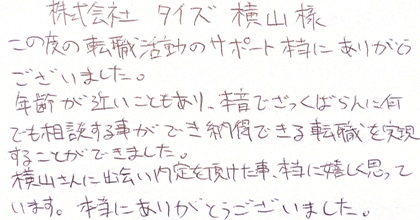 株式会社 タイズ 横山様
この度の転職活動のサポート本当にありがとう
ございました。
年齢が近いこともあり、本音でざっくばらんに何
でも相談する事ができ納得できる転職を実現
することができました。
横山さんに出会い内定を頂けた事、本当に嬉しく思って
います。本当にありがとうございました。